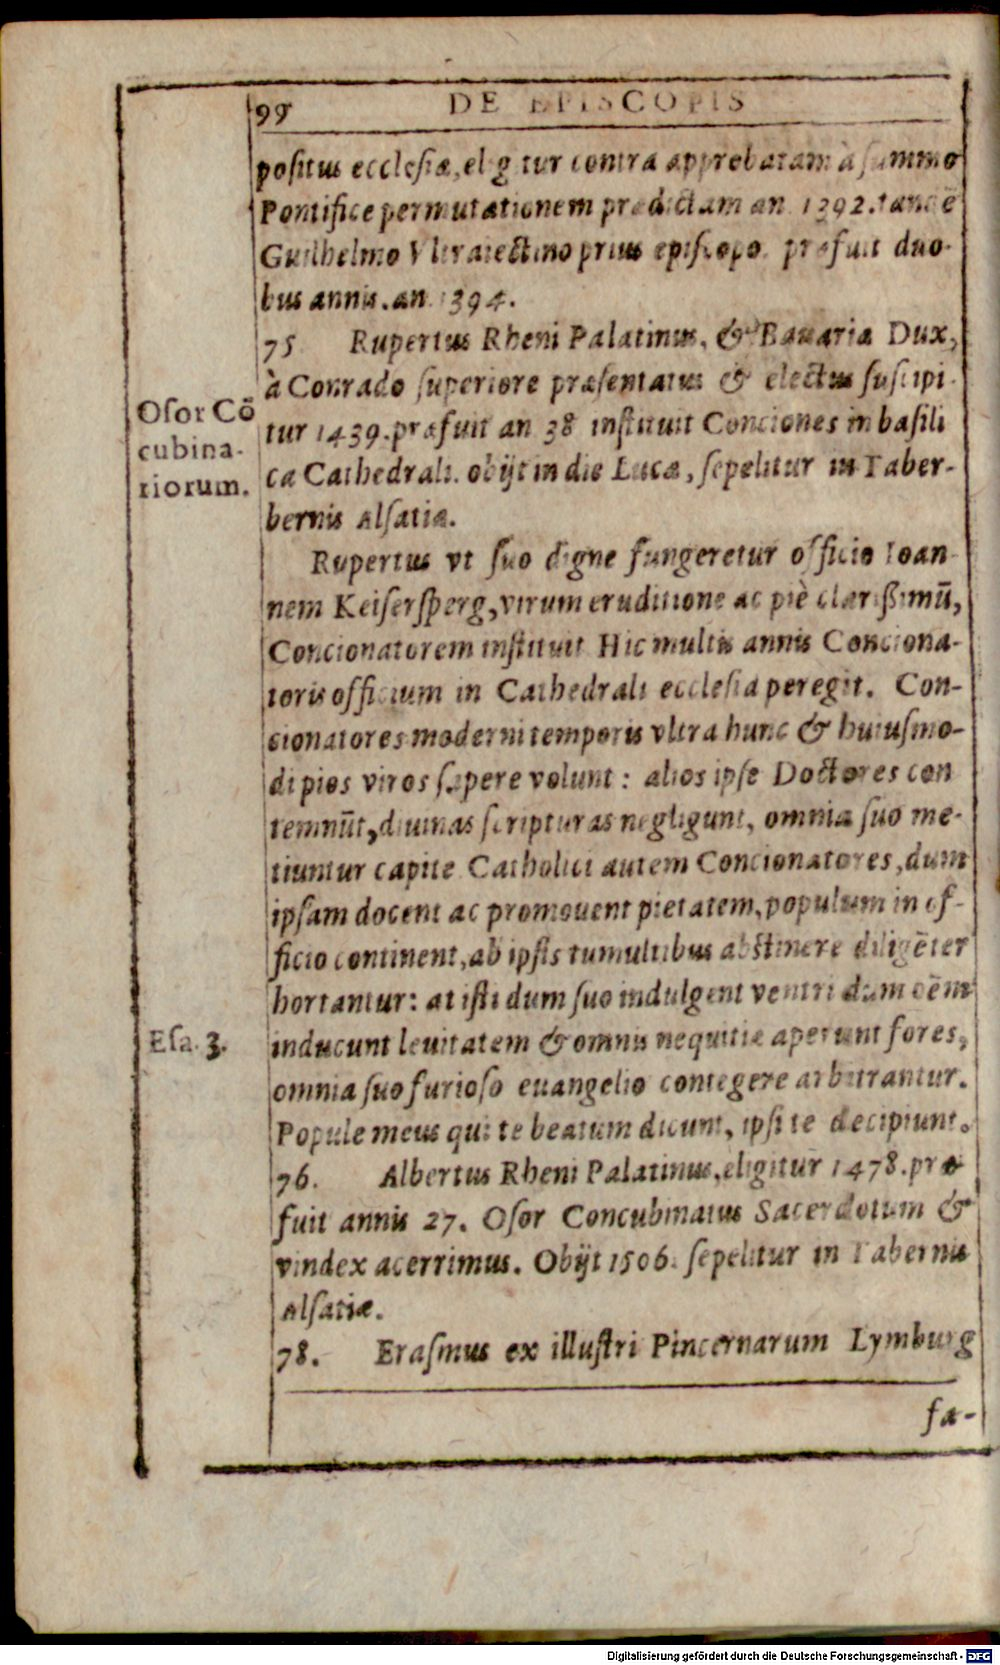 99 DE EPISCOPIS
positus ecclesiæ, eligitur contra approbatam à summo
Pontifice permutationem prædictam an 1392. tandē
Guilhelmo Vltraiectino prius episcopo. præfuit duo-
bus annis. an 1394.
75 Rupertus Rheni Palatinus, & Bauariæ Dux,
à Conrado superiore præsentatus & electus suscipi-
tur 1439. præfuit an 38 instituit Conciones in basili
ca Cathedrali. obijt in die Lucæ, sepelitur in Taber-
bernis Alsatiæ.
Osor Cō
cubina-
riorum.
Rupertus vt suo digne fungeretur officio Ioan-
nem Keisersperg, virum eruditione ac piè clarißimū,
Concionatorem instituit Hic multis annis Conciona-
toris officium in Cathedrali ecclesia peregit. Con-
cionatores moderni temporis vltra hunc & huiusmo-
di pios viros sapere volunt: alios ipse Doctores con
temnūt, diuinas scripturas negligunt, omnia suo me-
tiuntur capite Catholici autem Concionatores, dum
ipsam docent ac promouent pietatem, populum in of-
ficio continent, ab ipsis tumultibus abstinere diligēter
hortantur: at isti dum suo indulgent ventri dum oēm
inducunt leuitatem & omnis nequitiæ aperiunt fores,
omnia suo furioso euangelio contegere arbitrantur.
Popule meus qui te beatum dicunt, ipsi te decipiunt.
Esa. 3.
76. Albertus Rheni Palatinus, eligitur 1478. præ
fuit annis 27. Osor Concubinatus Sacerdotum &
vindex acerrimus. Obijt 1506. sepelitur in Tabernis
Alsatiæ.
78. Erasmus ex illustri Pincernarum Lymburg
fa-
Digitalisierung gefördert durch die Deutsche Forschungsgemeinschaft - DFG